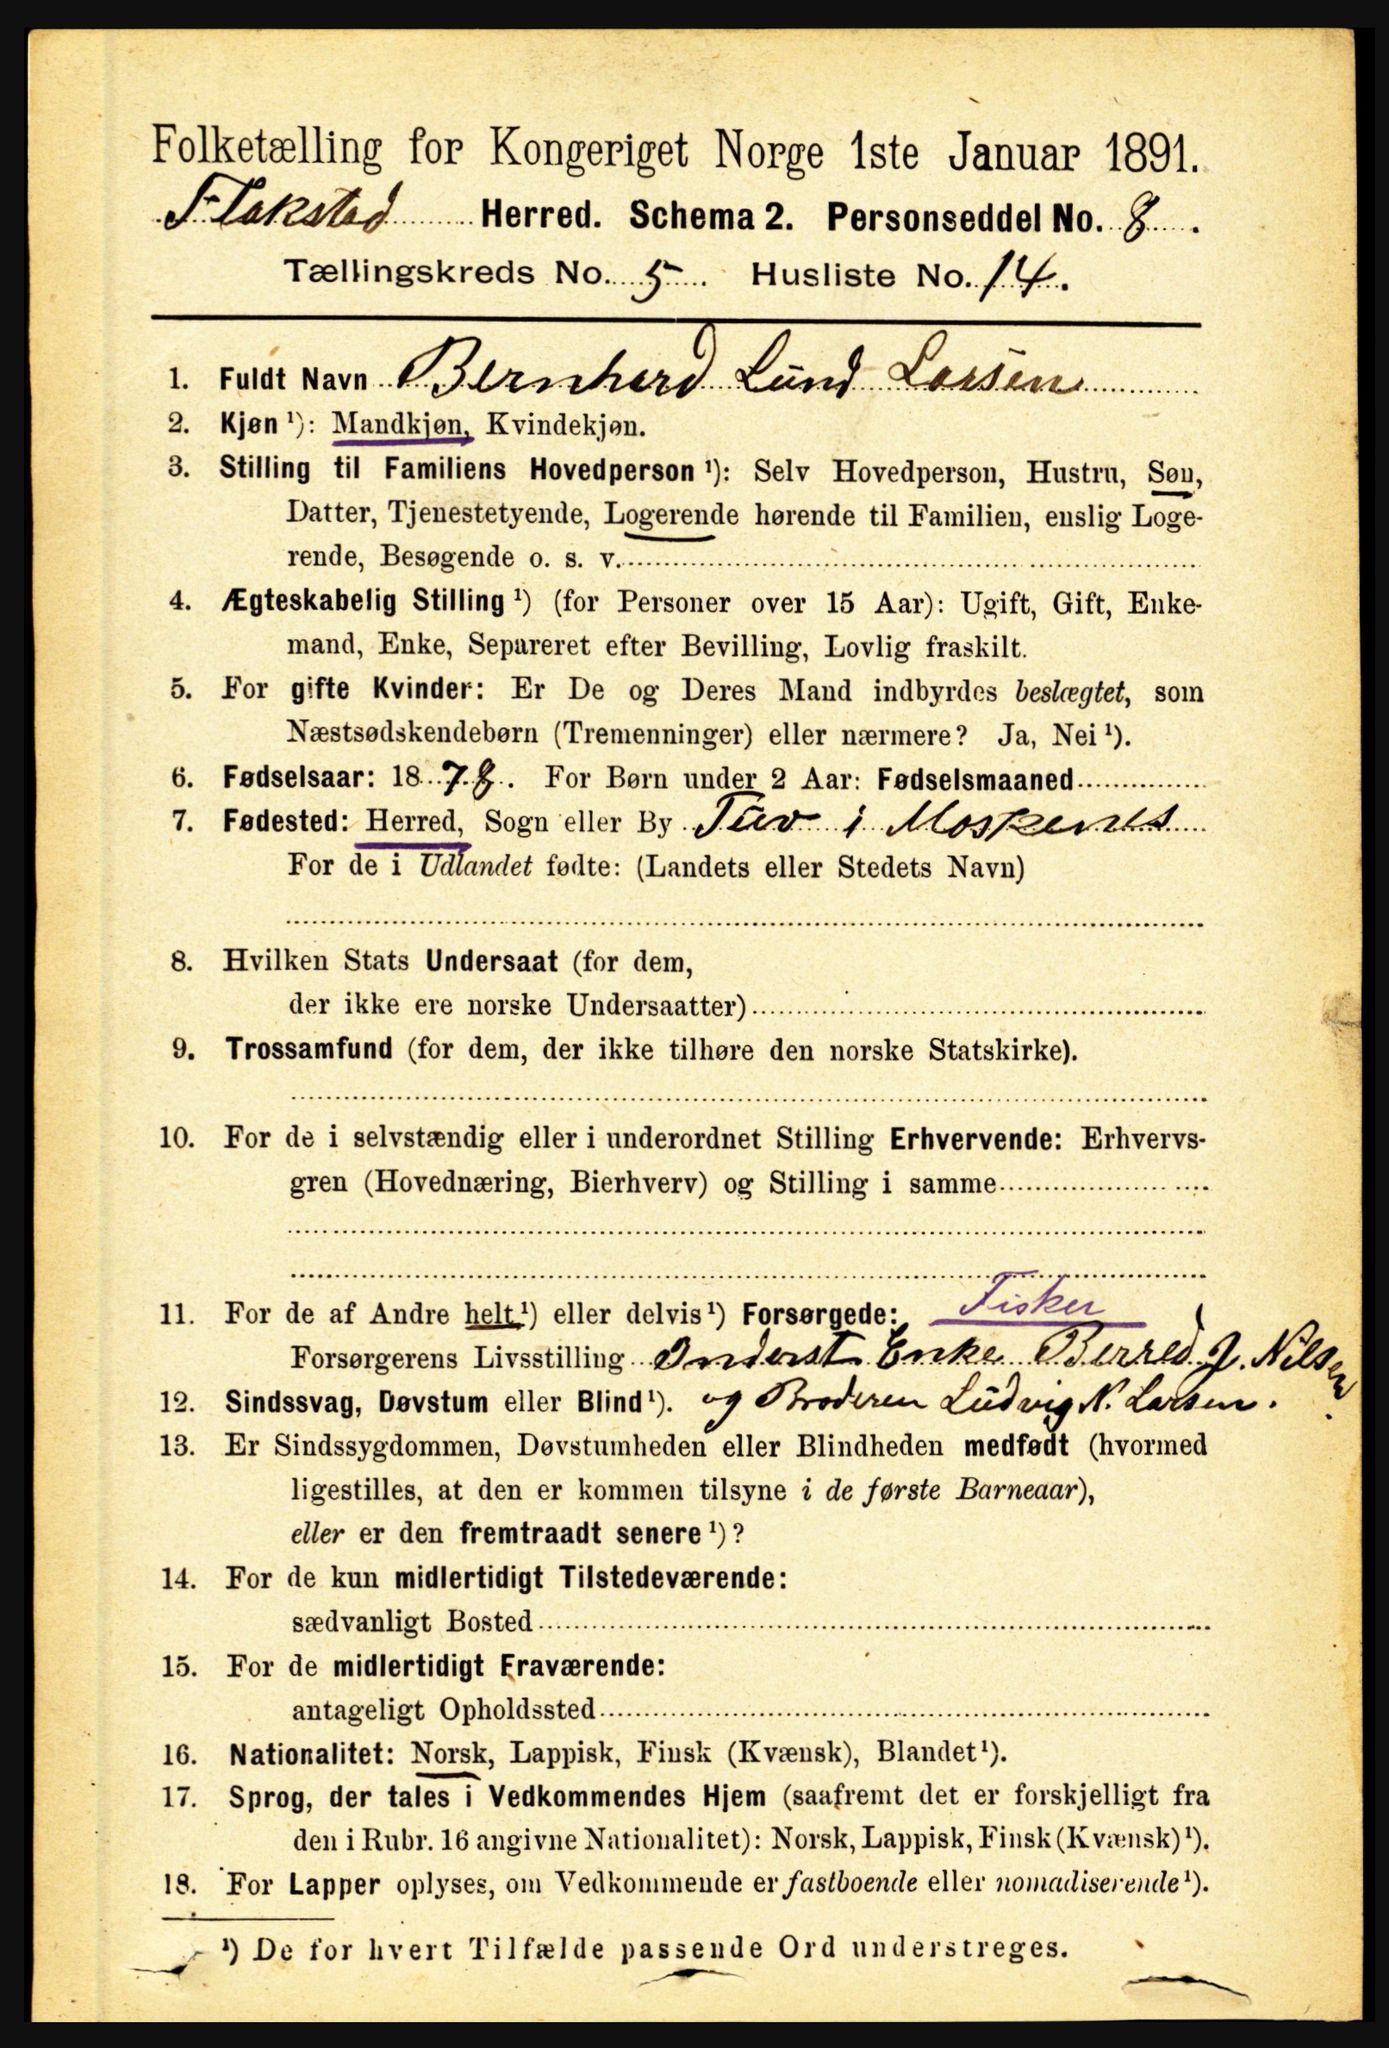 Folketælling for Kongeriget Norge 1ste Januar 1891.
Flakstad Herred. Schema 2. Personseddel No. 8.
Tællingskreds No. 5. Husliste No. 14.
1. Fuldt Navn Bernhard Lund Larsen
2. Kjøn ¹): Mandkjøn, Kvindekjøn.
3. Stilling til Familiens Hovedperson ¹): Selv Hovedperson, Hustru, Søn,
Datter, Tjenestetyende, Logerende hørende til Familien, enslig Loge-
rende, Besøgende o. s. v.
4. Ægteskabelig Stilling ¹) (for Personer over 15 Aar): Ugift, Gift, Enke-
mand, Enke, Separeret efter Bevilling, Lovlig fraskilt.
5. For gifte Kvinder: Er De og Deres Mand indbyrdes beslægtet, som
Næstsødskendebørn (Tremenninger) eller nærmere? Ja, Nei ¹).
6. Fødselsaar: 1878. For Børn under 2 Aar: Fødselsmaaned
7. Fødested: Herred, Sogn eller By Tuv i Moskenes
For de i Udlandet fødte: (Landets eller Stedets Navn)
8. Hvilken Stats Undersaat (for dem,
der ikke ere norske Undersaatter)
9. Trossamfund (for dem, der ikke tilhøre den norske Statskirke).
10. For de i selvstændig eller i underordnet Stilling Erhvervende: Erhvervs-
gren (Hovednæring, Bierhverv) og Stilling i samme
11. For de af Andre helt ¹) eller delvis ¹) Forsørgede: Fisker
Forsørgerens Livsstilling Inderst Enke J. Nilsen
12. Sindssvag, Døvstum eller Blind ¹). og Broderen Ludvig N. Larsen.
13. Er Sindssygdommen, Døvstumheden eller Blindheden medfødt (hvormed
ligestilles, at den er kommen tilsyne i de første Barneaar),
eller er den fremtraadt senere ¹)?
14. For de kun midlertidigt Tilstedeværende:
sædvanligt Bosted
15. For de midlertidigt Fraværende:
antageligt Opholdssted
16. Nationalitet: Norsk, Lappisk, Finsk (Kvænsk), Blandet ¹).
17. Sprog, der tales i Vedkommendes Hjem (saafremt det er forskjelligt fra
den i Rubr. 16 angivne Nationalitet): Norsk, Lappisk, Finsk (Kvænsk) ¹).
18. For Lapper oplyses, om Vedkommende er fastboende eller nomadiserende ¹).
¹) De for hvert Tilfælde passende Ord understreges.